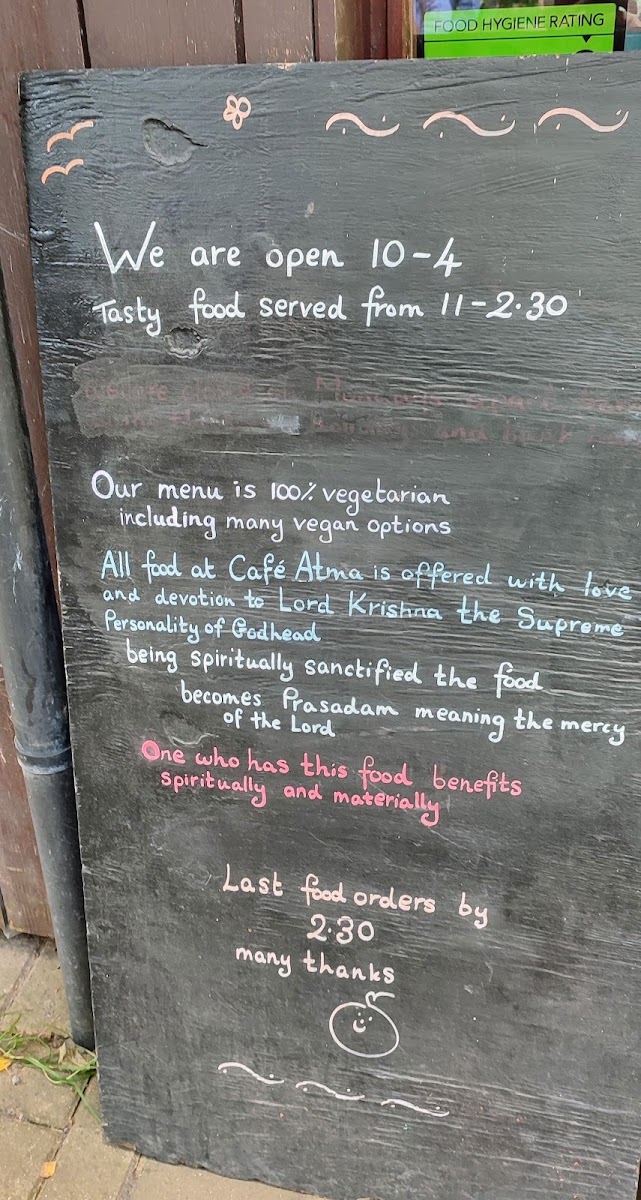 FOOD HYGIENE RATING
We are open 10-4
Tasty food served from 11-2.30
Our menu is 100% vegetarian
including many vegan options
All food at Café Atma is offered with love
and devotion to Lord Krishna the Supreme
Personality of Godhead
being spiritually sanctified the food
becomes Prasadam meaning the mercy
of the Lord
One who has this food benefits
spiritually and materially
Last food orders by
2.30
many thanks